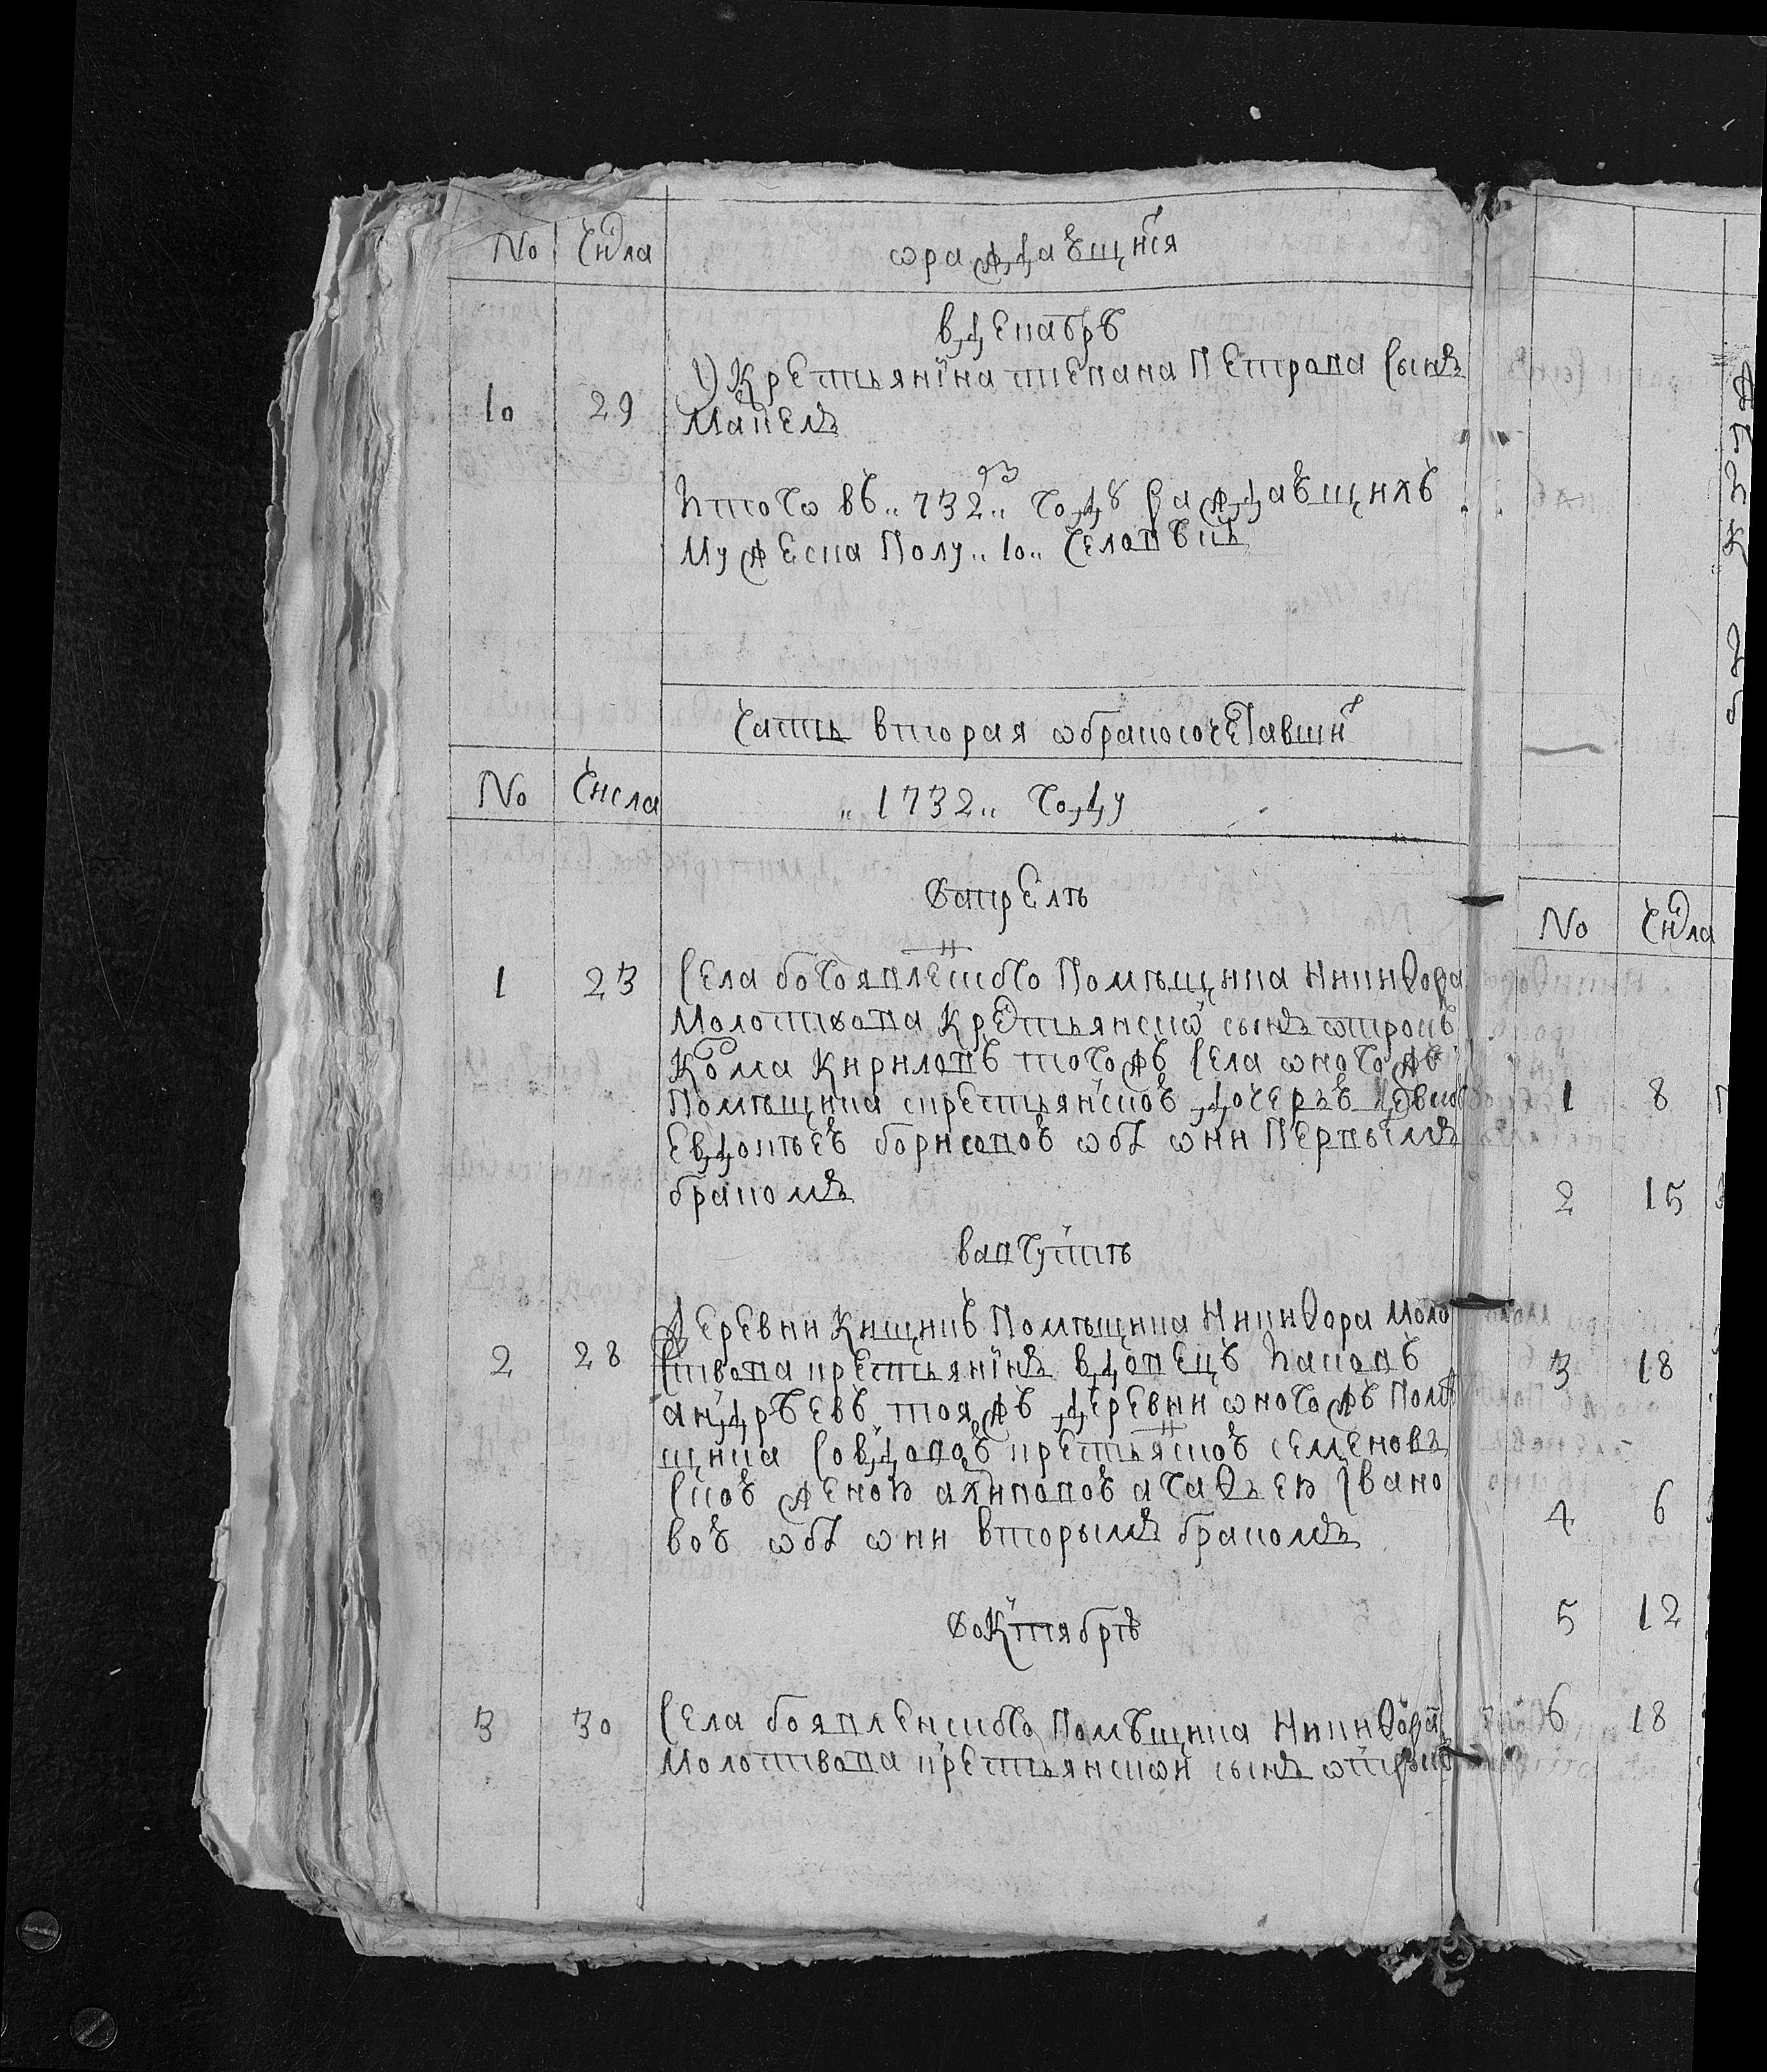 No Числа ѡраждающихся
в декабрѣ
10 29 У Крестьянїна степана Петрова сынъ
Макелъ
Итого вѣ „732„ году раждающихъ
Мужеска Полу „10„ человѣкъ
часть вторая ѡбракосочетавши
No числа „1732„ году
Ѡапрелѣ
1 23 Села богоявленского Помѣщика Никиѳора
Молоствова Крестьянской сынъ ѡтрокъ
Козма Кирилавъ тогожъ села ѡногожъ
Помѣщика скрестьянскоѣ дочеръѣ девко
Евдокьеѣ борисовоѣ ѡбѣ ѡни Первымъ
бракомъ
вавгустѣ
2 28 Деревни Кищикѣ Помѣщика Никиѳора Моло
ствова крестьянїнъ вдовецъ Иаковъ
андрѣевъ тояжъ деревни ѡногожъ Помѣ
щика Совдовоѣ крестьянскоѣ семеновъ
скоѣ женоѣ архиповоѣ агаѳьеѣ Ивано
воѣ ѡбѣ ѡни вторымъ бракомъ
Ѡоктябрѣ
3 30 Села боявленского Помѣщика Никиѳора
Молоствова крестьянскѡи сынъ ѡтрокъ
No Числа
1 8
2 15
3 18
4 6
5 12
6 18